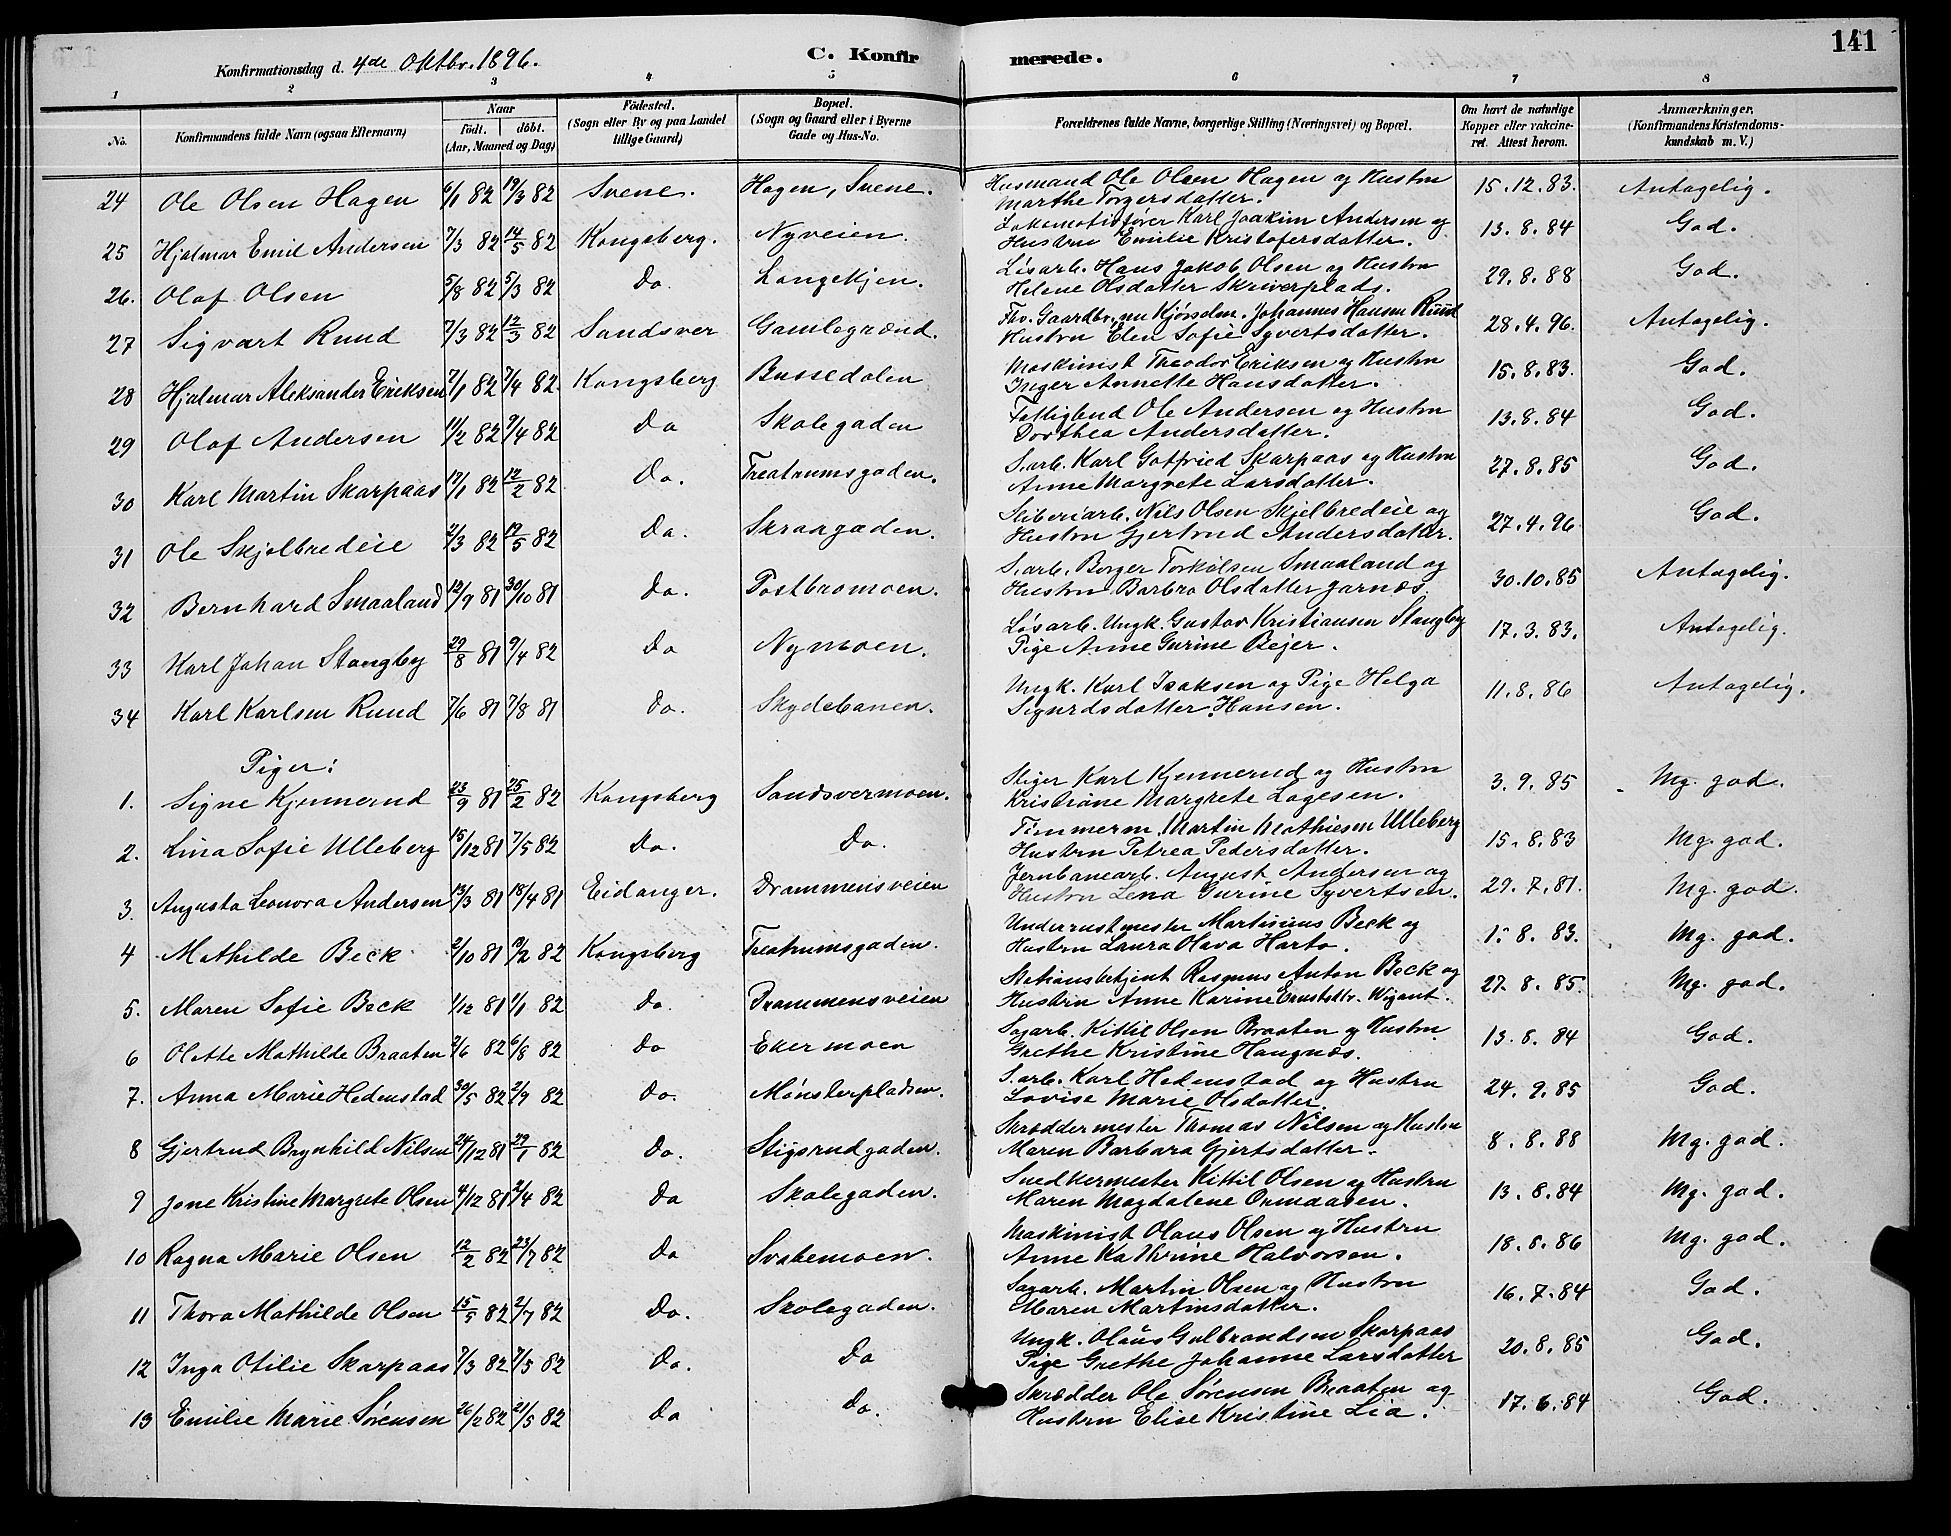 141
Konfirmationsdag d. 4de Oktbr. 1896.
C. Konfirmerede.
1 2 3 4 5 6 7 8
No. Konfirmandens fulde Navn (ogsaa Efternavn) Naar födt. döbt. (Aar, Maaned og Dag) Födested. (Sogn eller By og paa Landet tillige Gaard) Bopæl. (Sogn og Gaard eller i Byerne Gade og Hus-No. Forældrenes fulde Navne, borgerlige Stilling (Næringsvei) og Bopæl. Om havt de naturlige Kopper eller vakcineret. Attest herom. Anmærkninger. (Konfirmandens Kristendomskundskab m. V.)
24 Ole Olsen Hagen 6/1 82 19/3 82 Svene. Hagen, Svene. Husmand Ole Olsen Hagen og Hustru Marthe Torgersdatter. 15.12.83. Antagelig.
25 Hjalmar Emil Andersen 7/3 82 14/5 82 Kongsberg. Nyveien. Lokomotivfører Karl Joakim Andersen og Hustru Emilie Kristofersdatter. 13.8.84 God.
26. Olaf Olsen 5/8 82 5/3 82 Do. Langekjen. Løsarb. Hans Jakob Olsen og Hustru Helene Olsdatter Skriverplads. 29.8.88 God.
27 Sigvart Ruud 7/3 82 12/3 82 Sandsver Gamlegrænd. Fhv. Gaardbr. nu Kjørselm. Johannes Hansen Ruud Hustru Elen Sofie Syvertsdatter. 28.4.96. Antagelig.
28 Hjalmar Aleksander Eriksen 7/1 82 7/4 82 Kongsberg Bussedalen Maskinist Theodor Eriksen og Hustru Inger Annette Hansdatter. 15.8.83. God.
29 Olaf Andersen 11/2 82 9/4 82 Do Skolegaden Fattiglend Ole Andersen og Hustru Dorthea Andersdatter. 13.8.84 God.
30 Karl Martin Skarpaas 17/1 82 12/2 82 Do. Treatrumsgaden. S.arb. Karl Gotfried Skarpaas og Hustru Anne Margrete Larsdatter. 27.8.85 God.
31 Ole Skjelbredeie 2/3 82 17/5 82 Do. Skraagaden. Sliberiarb. Nils Olsen Skjelbredeie og Hustru Gjertrud Andersdatter. 27.4.96 God.
32 Bernhard Smaaland 12/9 81 30/10 81 Do. Postbromoen. S.arb. Borger Torkilsen Smaaland og Hustru Barbro Olsdatter Jarnæs. 30.10.85 Antagelig.
33 Karl Johan Stangby 29/8 81 9/4 82 Do Nymoen. Løsarb. Ungk. Gustav Kristiansen Stangby Pige Anne Gurine Bejer. 17.3.83. Antagelig.
34 Karl Karlsen Ruud 7/6 81 7/8 81 Do. Skydebanen. Ungk. Karl Isaksen og Pige Helga Sigurdsdatter Hansen. 11.8.86 Antagelig.
Piger:
1. Signe Kjennerud 23/9 81 25/2 82 Kongsberg Sandsvermoen. Stiger Karl Kjennerud og Hustru Kristiane Margrete Lagesen. 3.9.85 Mg. god.
2. Lina Sofie Ulleberg 15/12 81 7/5 82 Do. Do. Timmerm. Martin Mathiesen Ulleberg Hustru Petrea Pedersdatter. 15.8.83 Mg. god.
3. Augusta Leonora Andersen 13/3 81 18/4 81 Eidanger. Drammensveien Jernbanearb. August Andersen og Hustru Lena Gurine Syvertsen. 29.7.81. Mg. god.
4 Mathilde Beck 2/10 81 19/2 82 Kongsberg Treatrumsgaden. Underrustmester Martinius Beck og Hustru Laura Olava Harto. 15.8.83. Mg. god.
5. Maren Sofie Beck 1/12 81 1/1 82 Do Drammensveien Stationsbetjent Rasmus Anton Beck og Hustru Anne Karine Ernstdtr. Wigant. 27.8.85. Mg. god.
6 Olette Mathilde Braaten 2/6 82 6/8 82 Do Ekermoen Sagarb. Kittil Olsen Braaten og Hustru Grethe Kristine Haugnæs. 13.8.84 God.
7. Anna Marie Hedenstad 30/5 82 2/9 82 Do. Mønsterpladsen. S.arb. Karl Hedenstad og Hustru Lovise Marie Olsdatter. 24.9.85 God.
8 Gjertrud Brynhild Nilsen 24/12 81 29/1 82 Do. Stigsrudgaden. Skræddermester Thomas Nilsen og Hustru Maren Barbara Gjertsdatter. 8.8.88 Mg. god.
9 Jone Kristine Margrete Olsen 4/12 81 2/4 82 Do Skolegaden. Snedkermester Kittil Olsen og Hustru Maren Magdalene Ormaasen. 13.8.84 Mg. god.
10 Ragna Marie Olsen 12/2 82 23/7 82 Do Svabemoen. Maskinist Olaus Olsen og Hustru Anne Kathrine Halvorsen. 18.8.86 Mg. god.
11 Thora Mathilde Olsen 15/5 82 2/7 82 Do. Skolegaden. Sagarb. Martin Olsen og Hustru Maren Martinsdatter. 16.7.84 God.
12 Inga Otilie Skarpaas 7/3 82 7/5 82 Do. Do Ungk. Olaus Gulbrandsen Skarpaas Pige Grethe Johanne Larsdatter 20.8.85 God.
13 Emilie Marie Sørensen 26/2 82 21/5 82 Do Do. Skrædder Ole Sørensen Braaten og Hustru Elise Kristine Lia. 17.6.84 God.